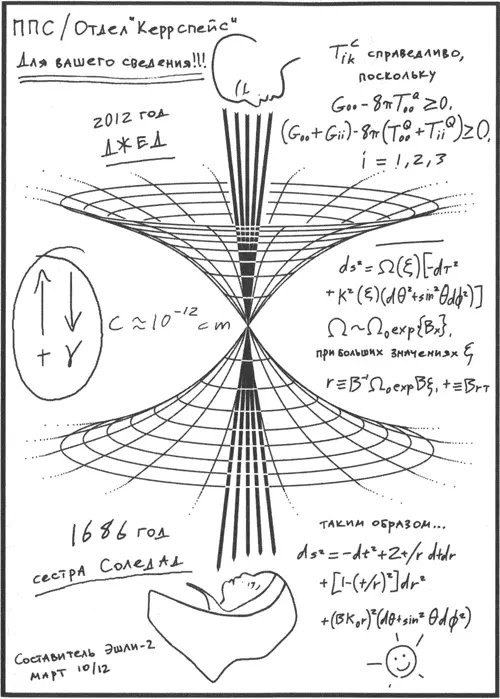 ППС/Отдел "Керрспейс"
Для вашего сведения!!!
2012 год
ДЖЕД
T_ik^C справедливо,
поскольку
G₀₀ - 8πT₀₀^a ≥ 0.
(G₀₀ + Gii) - 8π(T₀₀^Q + Tii^Q) ≥ 0,
i = 1, 2, 3
ds² = Ω(ξ)[-dτ²
+ K²(ξ)(dθ² + sin²θdφ²)]
Ω ~ Ω₀exp{Bx},
при больших значениях ξ
r ≡ B⁻¹Ω₀expBξ, + ≡ Brτ
+ γ
C ≈ 10⁻¹² cm
1686 год
сестра Соледад
таким образом...
ds² = -dt² + 2t/r dtdr
+ [1-(+/r)²]dr²
+(BK₀r)²(dθ + sin²θdφ²)
Составитель Эшли-2
март 10/12